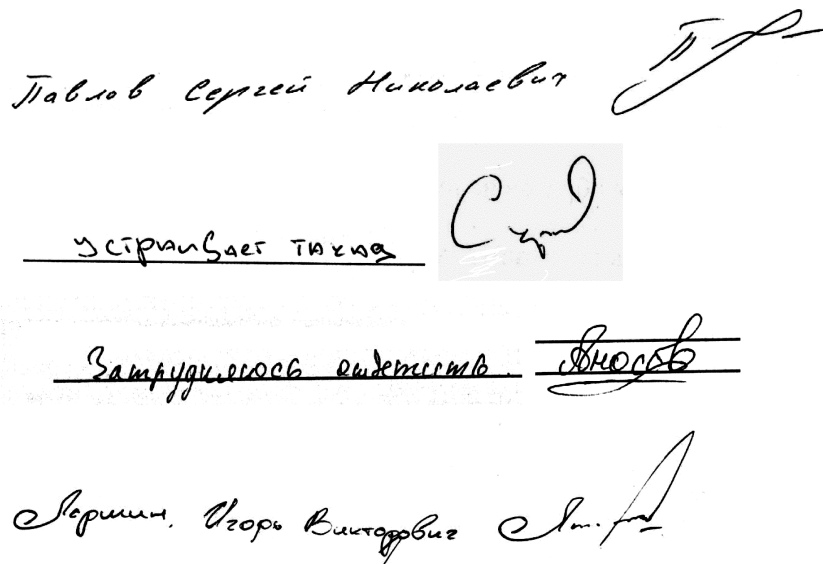 Павлов Сергей Николаевич
устраивает такая
Затрудняюсь ответить.
Игорь Викторович